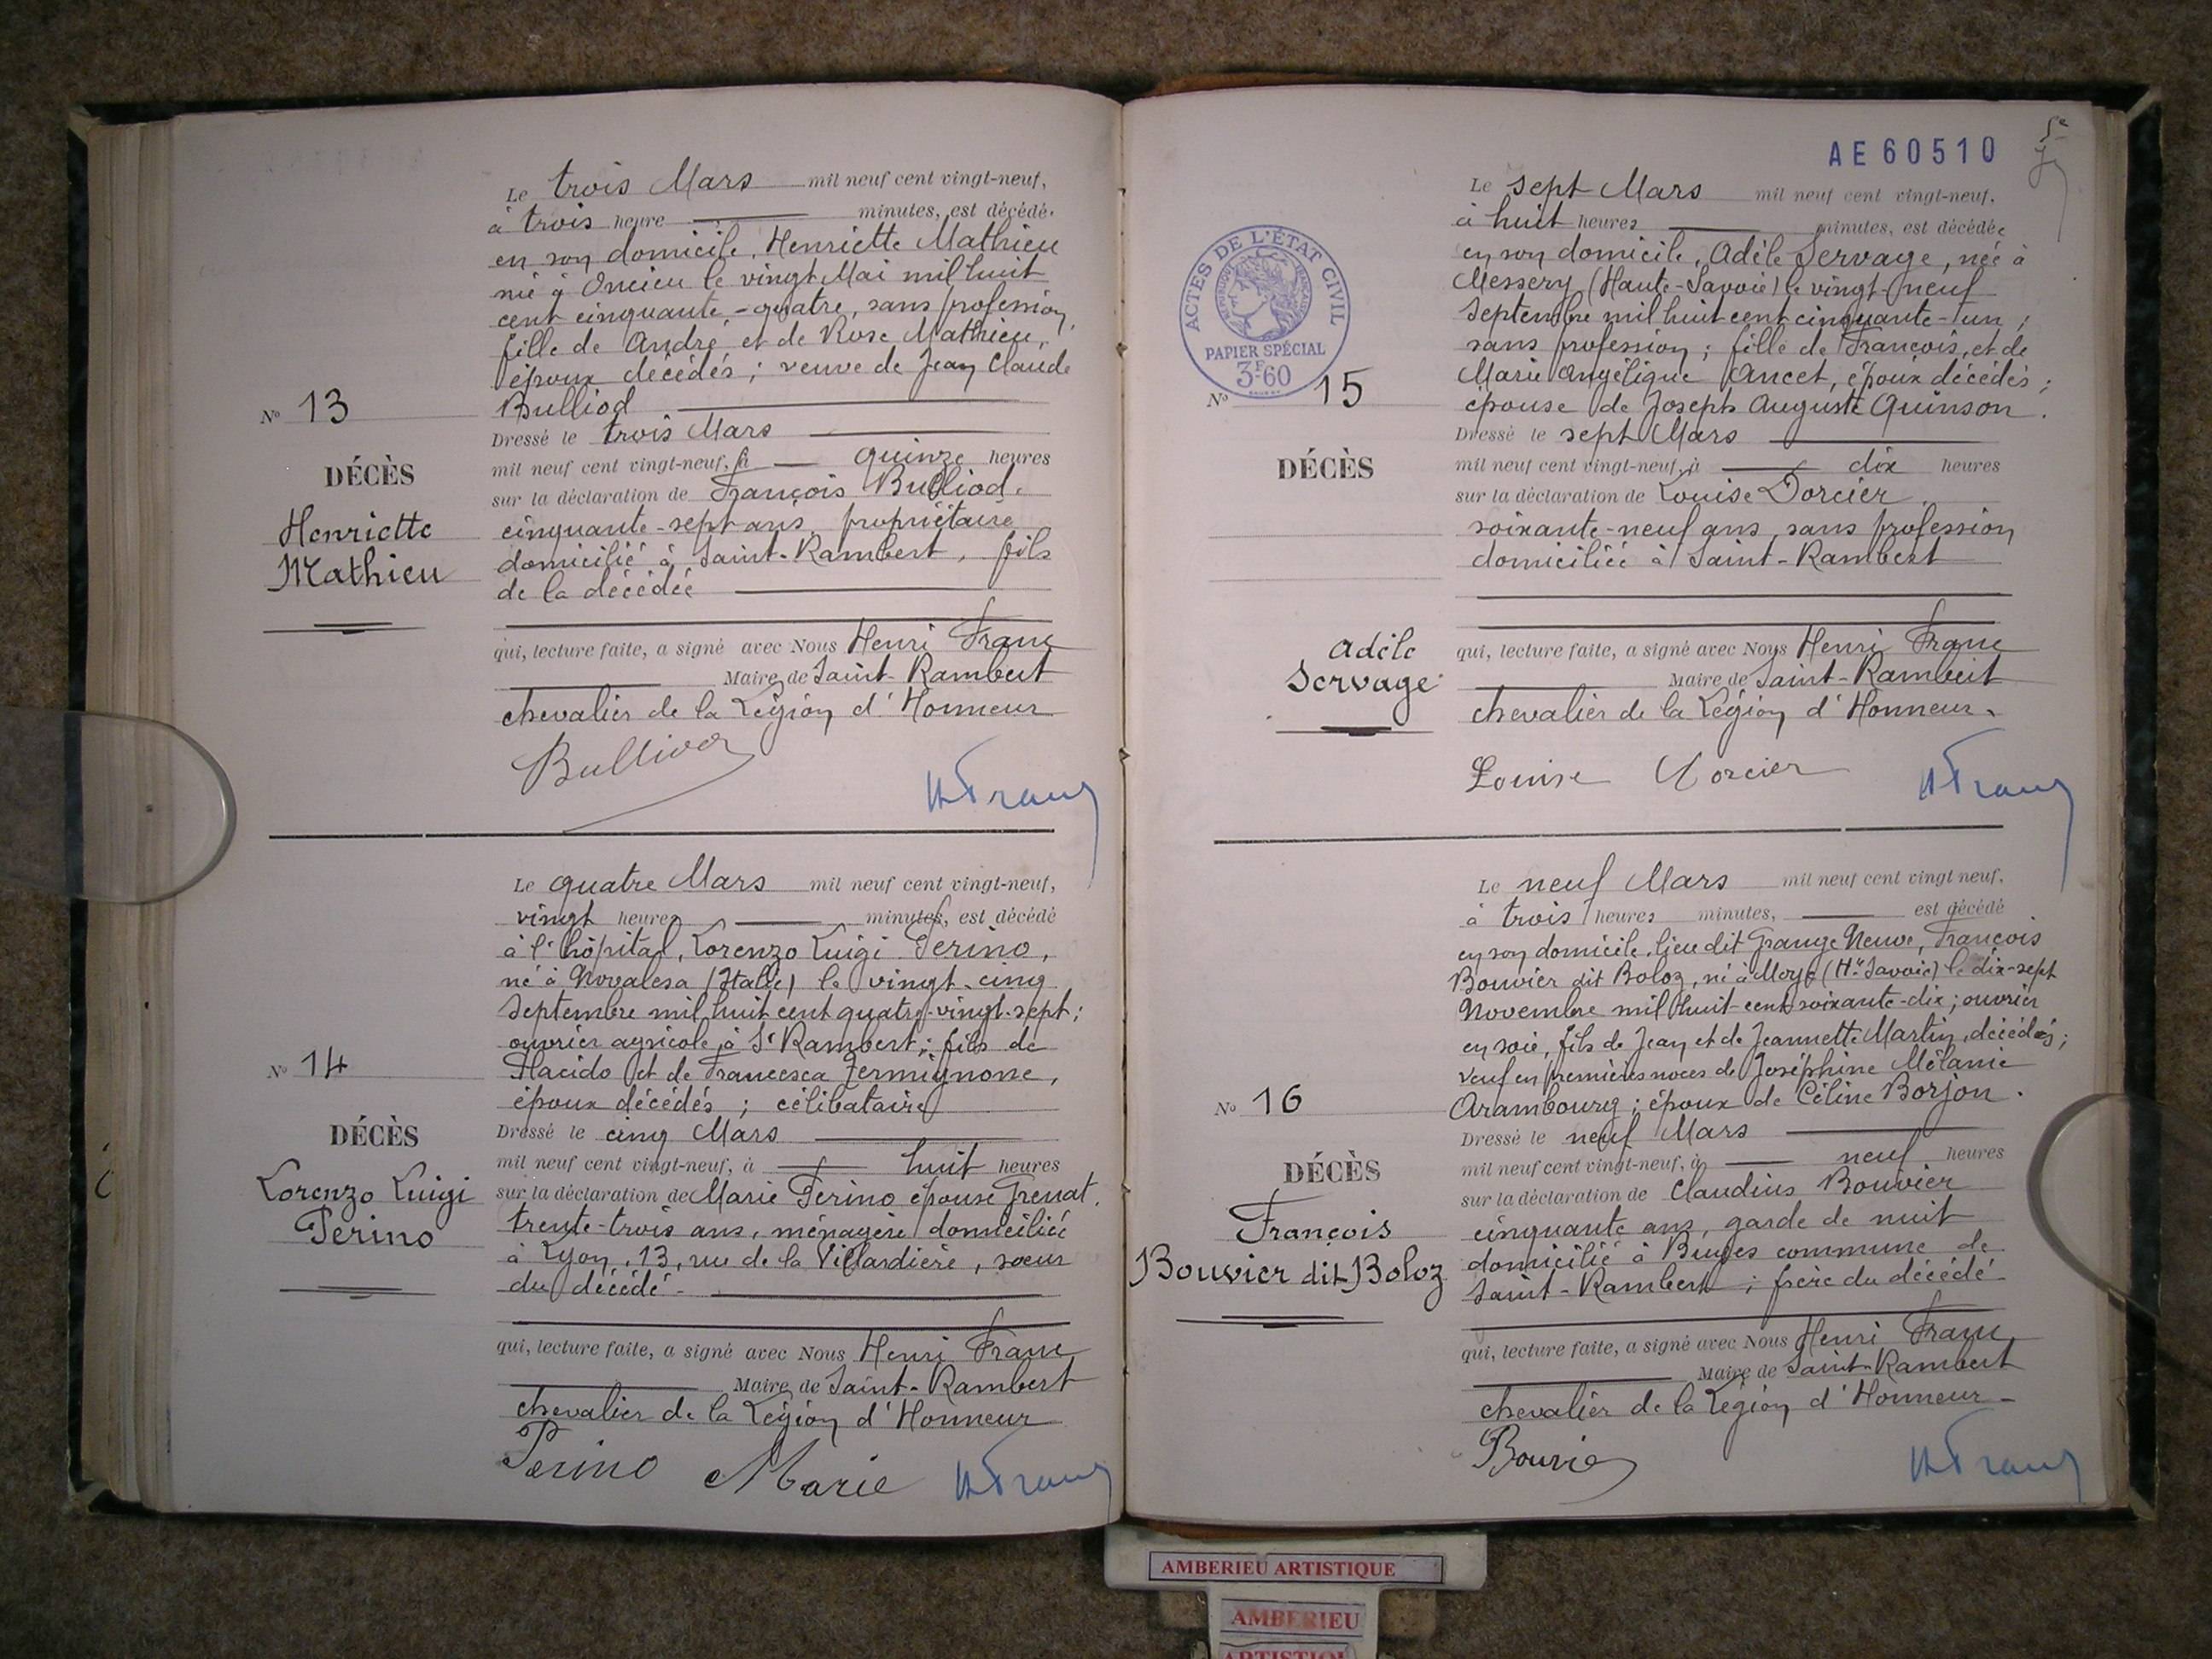 Le trois Mars mil neuf cent vingt-neuf,
à trois heure minutes, est décédé.
en son domicile, Henriette Mathieu
né à Oncieu le vingt Mai mil huit
cent cinquante-quatre, sans profession,
fille de André et de Rose Mathieu,
époux décédés ; veuve de Jean Claude
Bulliod
No 13
Dressé le trois Mars
mil neuf cent vingt-neuf, à quinze heures
DÉCÈS
sur la déclaration de François Bulliod,
Henriette
cinquante-sept ans, propriétaire
Mathieu
domicilié à Saint-Rambert, fils
de la décédée
qui, lecture faite, a signé avec Nous Henri Franc
Maire de Saint-Rambert
chevalier de la Légion d'Honneur
Bulliod
HFranc
Le quatre Mars mil neuf cent vingt-neuf,
vingt heures minutes, est décédé
à l'hôpital, Lorenzo Luigi Perino,
né à Novalesa (Italie) le vingt-cinq
Septembre mil huit cent quatre-vingt-sept ;
ouvrier agricole à St Rambert ; fils de
Placido et de Francesca Zermignone,
époux décédés ; célibataire
No 14
Dressé le cinq Mars
mil neuf cent vingt-neuf, à huit heures
DÉCÈS
Lorenzo Luigi
Perino
sur la déclaration de Marie Perino épouse Grenat,
trente-trois ans, ménagère domiciliée
à Lyon, 13, rue de la Villardière, sœur
du décédé
qui, lecture faite, a signé avec Nous Henri Franc
Maire de Saint-Rambert
chevalier de la Légion d'Honneur
Perino Marie HFranc
AE 60510
5e
ACTES DE L'ÉTAT CIVIL
RÉPUBLIQUE FRANÇAISE
PAPIER SPÉCIAL
3F60
Le sept Mars mil neuf cent vingt-neuf,
à huit heures minutes, est décédée
en son domicile, Adèle Servage, née à
Messery (Haute-Savoie) le vingt-neuf
Septembre mil huit cent cinquante-un ;
sans profession ; fille de François, et de
Marie Angélique Ancet, époux décédés ;
épouse de Joseph Auguste Quinson.
No 15
Dressé le sept Mars
DÉCÈS
mil neuf cent vingt-neuf, à dix heures
sur la déclaration de Louise Dorcier,
soixante-neuf ans, sans profession
domiciliée à Saint-Rambert
Adèle
Servage
qui, lecture faite, a signé avec Nous Henri Franc
Maire de Saint-Rambert
chevalier de la Légion d'Honneur.
Louise Dorcier
HFranc
Le neuf Mars mil neuf cent vingt neuf,
à trois heures minutes, est décédé
en son domicile, lieu dit Grange Neuve, François
Bouvier dit Boloz, né à Moye (Hte Savoie) le dix-sept
Novembre mil huit-cent soixante-dix ; ouvrier
en soie, fils de Jean et de Jeannette Martin, décédés ;
veuf en premières noces de Joséphine Mélanie
Arambourg ; époux de Céline Borjon.
No 16
Dressé le neuf Mars
mil neuf cent vingt-neuf, à neuf heures
DÉCÈS
François
Bouvier dit Boloz
sur la déclaration de Claudius Bouvier
cinquante ans, garde de nuit
domicilié à commune de
Saint-Rambert ; frère du décédé
qui, lecture faite, a signé avec Nous Henri Franc
Maire de Saint-Rambert
chevalier de la Légion d'Honneur
Bouvier
HFranc
AMBERIEU ARTISTIQUE
AMBERIEU
ARTISTIQUE